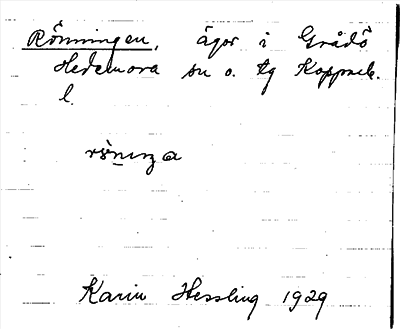 Rönningen, ägor i Grådö
Hedemora sn o. tg Kopparb.
l.
Karin Hessling 1929